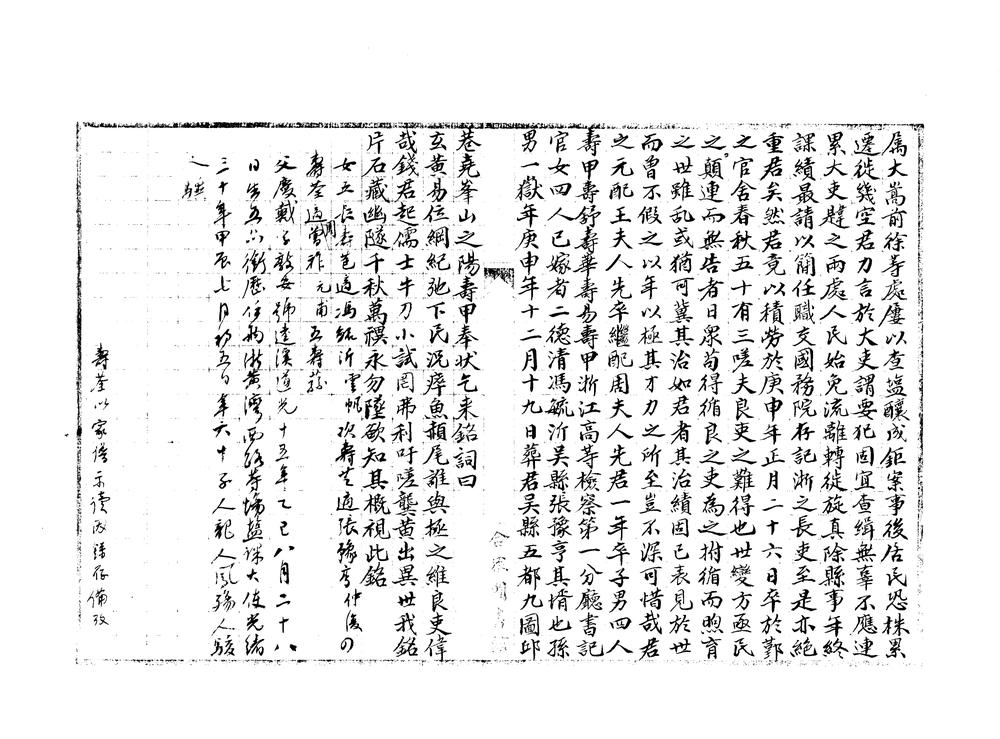 屬大蒿前徐等處屢以查鹽釀成鉅案事後居民恐株累
遷徙幾空君力言於大吏謂要犯固宜查緝無辜不應連
累大吏韙之兩處人民始免流離轉徙旋真除縣事年終
課績最請以簡任職交國務院存記浙之長吏至是亦絕
重君矣然君竟以積勞於庚申年正月二十六日卒於鄞
之官舍春秋五十有三嗟夫良吏之難得也世變方亟民
之顛連而無告者日眾苟得循良之吏為之拊循而煦育
之世雖亂或猶可冀其治如君者其治績固已表見於世
而曾不假之以年以極其才力之所至豈不深可惜哉君
之元配王夫人先卒繼配周夫人先君一年卒子男四人
壽甲壽舒壽華壽易壽甲浙江高等檢察第一分廳書記
官女四人已嫁者二德清馮毓沂吳縣張豫亨其壻也孫
男一嶽年庚申年十二月十九日葬君吳縣五都九圖邱
巷堯峯山之陽壽甲奉狀乞來銘詞曰
玄黃易位綱紀弛下民況瘁魚頳尾誰與極之維良吏偉
哉錢君起儒士牛刀小試罔弗利吁嗟龔黃出異世我銘
片石藏幽隧千秋萬禩永勿墜欲知其概視此銘
女五長壽 適馮毓沂雲帆次壽芝適張豫亨仲俊
壽荃適 元甫五壽蓀
父慶戴子 安號達溪道光十五年乙巳八月二十八
日生五品銜歷任 浙黃灣西路等場鹽課大使光緒
三十年甲辰七月初五日卒六十 子人 人鳳 人駿
人驥
壽荃以家傳示讀成謹存備攷